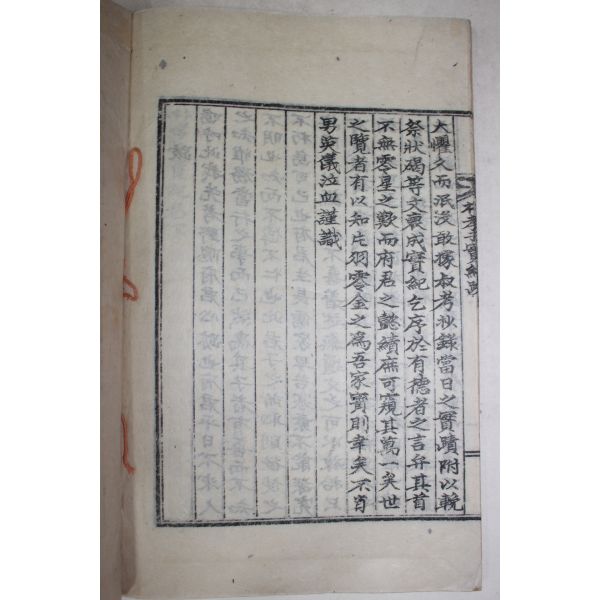 大懼久而泯沒敢據叔考抄錄當日之實蹟附以輓
祭狀碣等文裒成寶紀乞序於有德者之言弁其首
不無零星之歎而府君之懿績庶可窺其萬一矣世
之覽者有以知片羽零金之爲吾家寶則幸矣不肖
男英儀泣血謹識